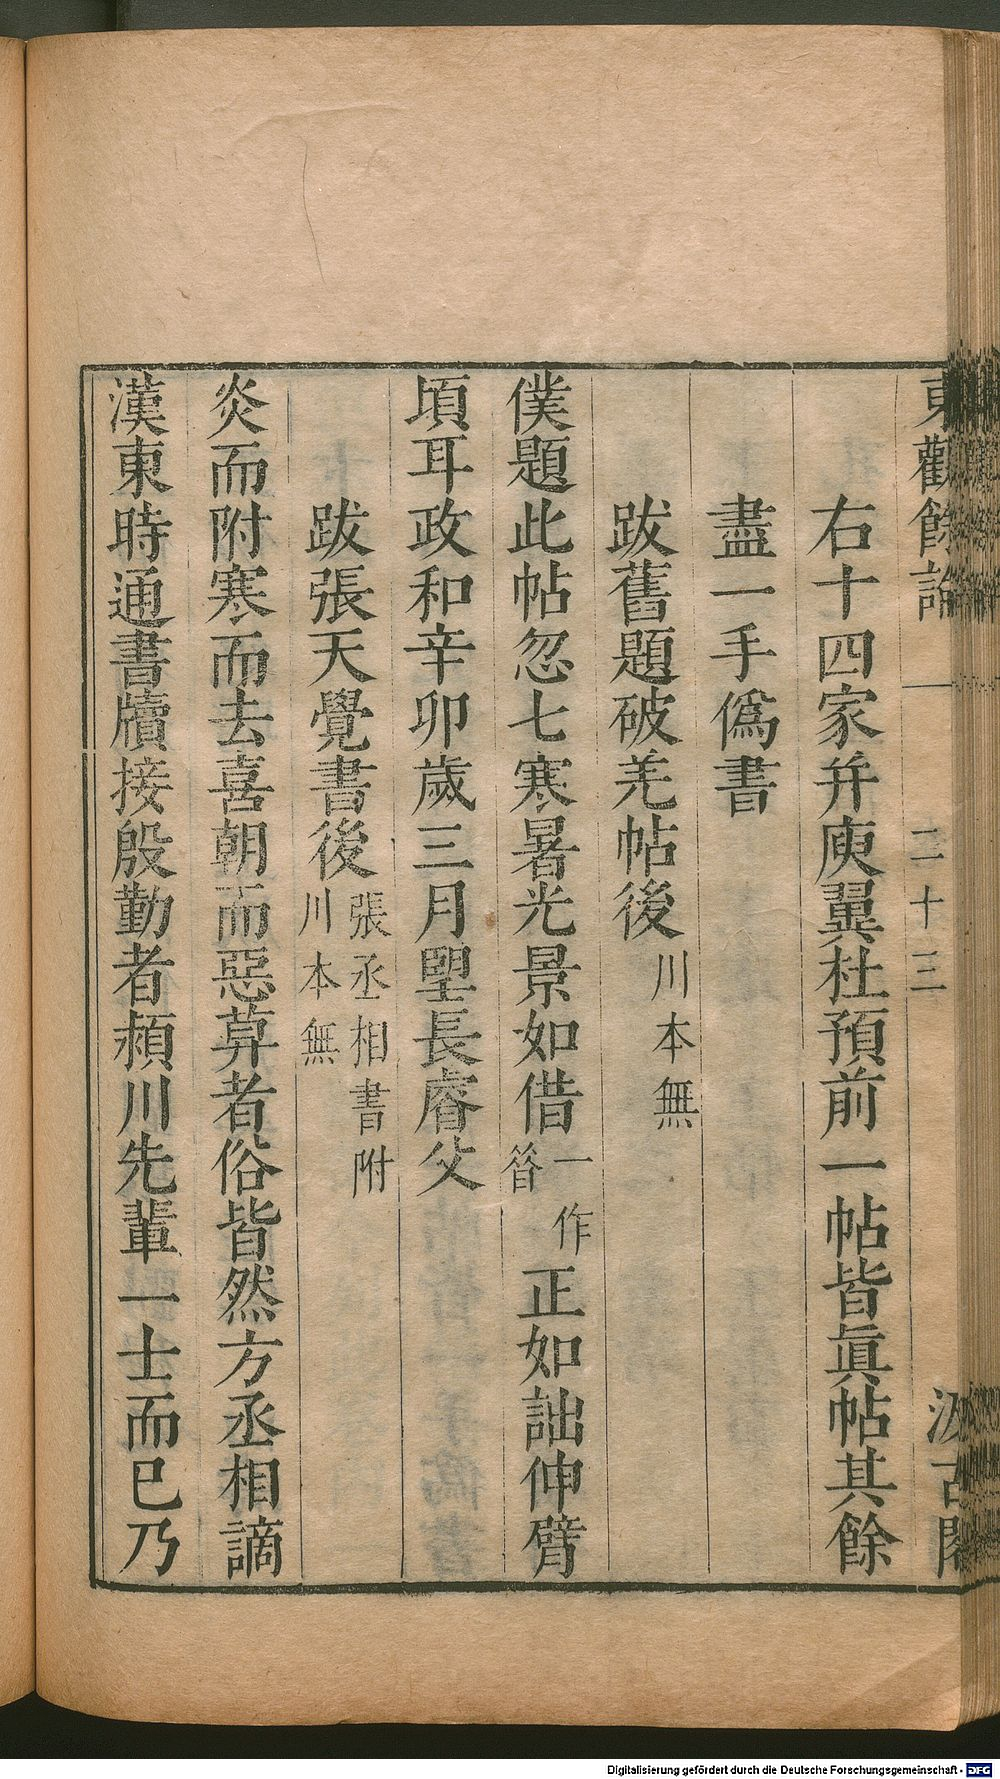 東觀餘論 二十三 汲古閣
右十四家并庾翼杜預前一帖皆眞帖其餘
盡一手僞書
跋舊題破羌帖後川本無
僕題此帖忽七寒暑光景如借一作晷正如詘伸臂
頃耳政和辛卯歲三月朢長睿父
跋張天覺書後張丞相書附川本無
炎而附寒而去喜朝而惡莫者俗皆然方丞相謫
漢東時通書牘接殷勤者潁川先輩一士而已乃
Digitalisierung gefördert durch die Deutsche Forschungsgemeinschaft - DFG